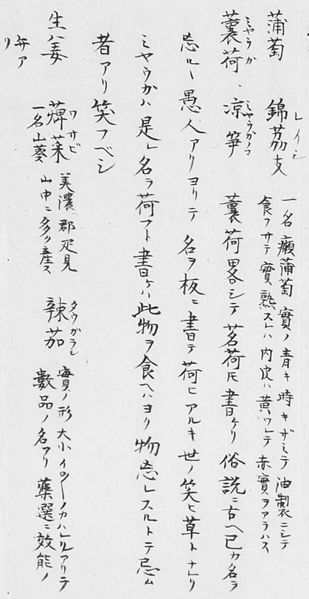 蒲萄　錦茘支　一名癩蒲萄 實ノ青キ時キザミテ油製ニシテ
レイシ
食フサテ實熟スレハ内皮ハ黄ワレテ赤實ヲアラハス
蘘荷、凉笋　蘘荷畧シテ茗荷ト書ケリ俗説ニ古ヘ己カ名ヲ
ミヤウガ　ミヤウガノコ
忘ルヽ愚人アリヨリテ名ヲ板ニ書テ荷ヒアルキ世ノ笑ヒ草トナレリ
ミヤウカハ是レ名ヲ荷フト書ケハ此物ヲ食ヘハヨリ物忘レスルトテ忌ム
者アリ笑フベシ
生姜　ワサビ　美濃郡疋見　辣茄　實ノ形大小イロ〳〵ノカハレルアリテ
タウガラシ
一名山葵　山中ニ多ク産ス　數品ノ名アリ藥選ニ效能ノ
弁アリ